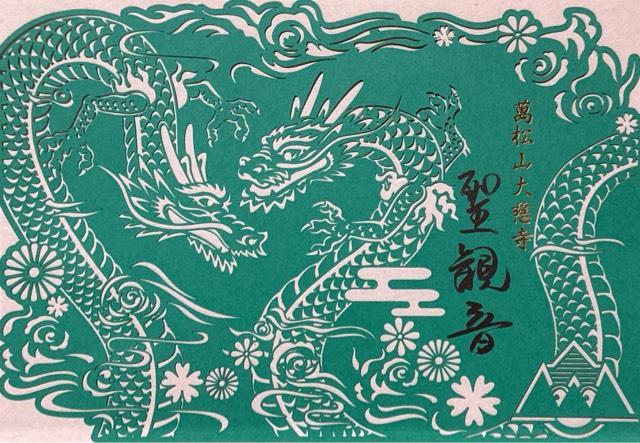 萬松山大慈寺
聖観音